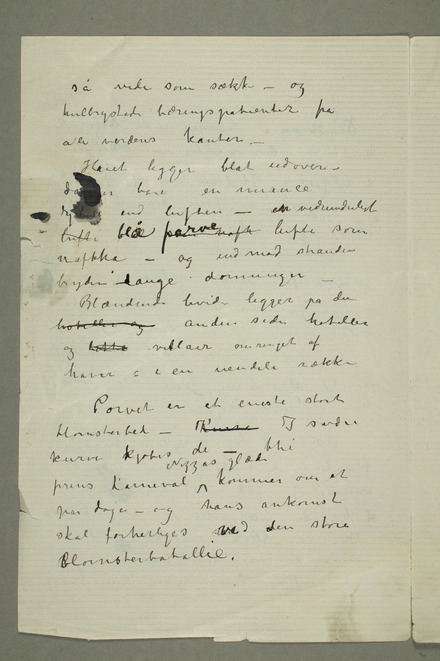 så vide som sække – og
hulbrystede tæringspatienter fra
alle verdens kanter. –
Havet ligger blåt udover –
bare en nuance
end luften – en vidunderlig
blå farve luft som
– og ind mod stranden
bryder lange dønninger –
Blændende hvide ligger på den
anden side hoteller
og villaer omringet af
haver i en uendelig række –
Torvet er et eneste stort
blomsterbed – I
kurve kjøbes de – thi
prins Karneval Nizzas glæde kommer om et
par dage – og hans ankomst
skal forherliges ved den store
Blomsterbatallie.